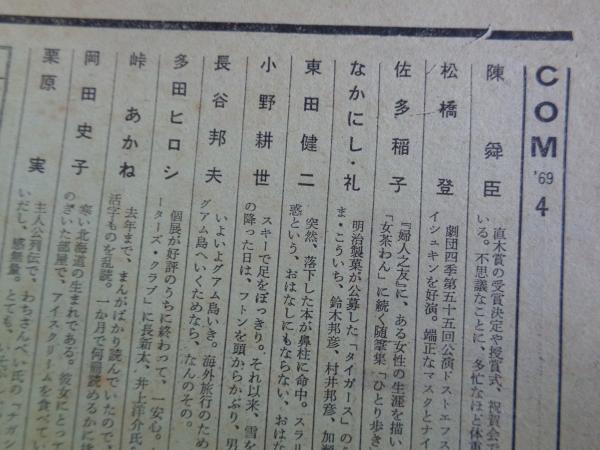 COM '69 4
陳舜臣
直木賞の受賞決定や授賞式、祝賀会で
いる。不思議なことに、多忙なほど体重
松橋登
劇団四季第五十五回公演ドストエフス
イシュキンを好演。端正なマスクとナイ
佐多稲子
『婦人之友』に、ある女性の生涯を描い
「女茶わん」に続く随筆集「ひとり歩き
なかにし・礼
明治製菓が公募した「タイガース」の
ま・こういち、鈴木邦彦、村井邦彦、加瀬
東田健二
突然、落下した本が鼻柱に命中。スラリ
惑という、おはなしにもならない、おはな
小野耕世
スキーで足をぽっきり。それ以来、雪を
の降った日は、フトンを頭からかぶり、男
長谷邦夫
いよいよグアム島いき。海外旅行のため
グアム島へいくためなら、なんのその。
多田ヒロシ
個展が好評のうちに終わって、一安心。
ーターズ・クラブ」に長新太、井上洋介氏
峠あかね
去年まで、まんがばかり読んでいたので、
活字ものを乱読。一か月で何冊読めるかに
岡田史子
寒い北海道の生まれである。彼女にとって
のきいた部屋で、アイスクリームを食べてい
栗原実
主人公列伝で、わちさんぺい氏の「ナガシ
いだし、感無量。とても、